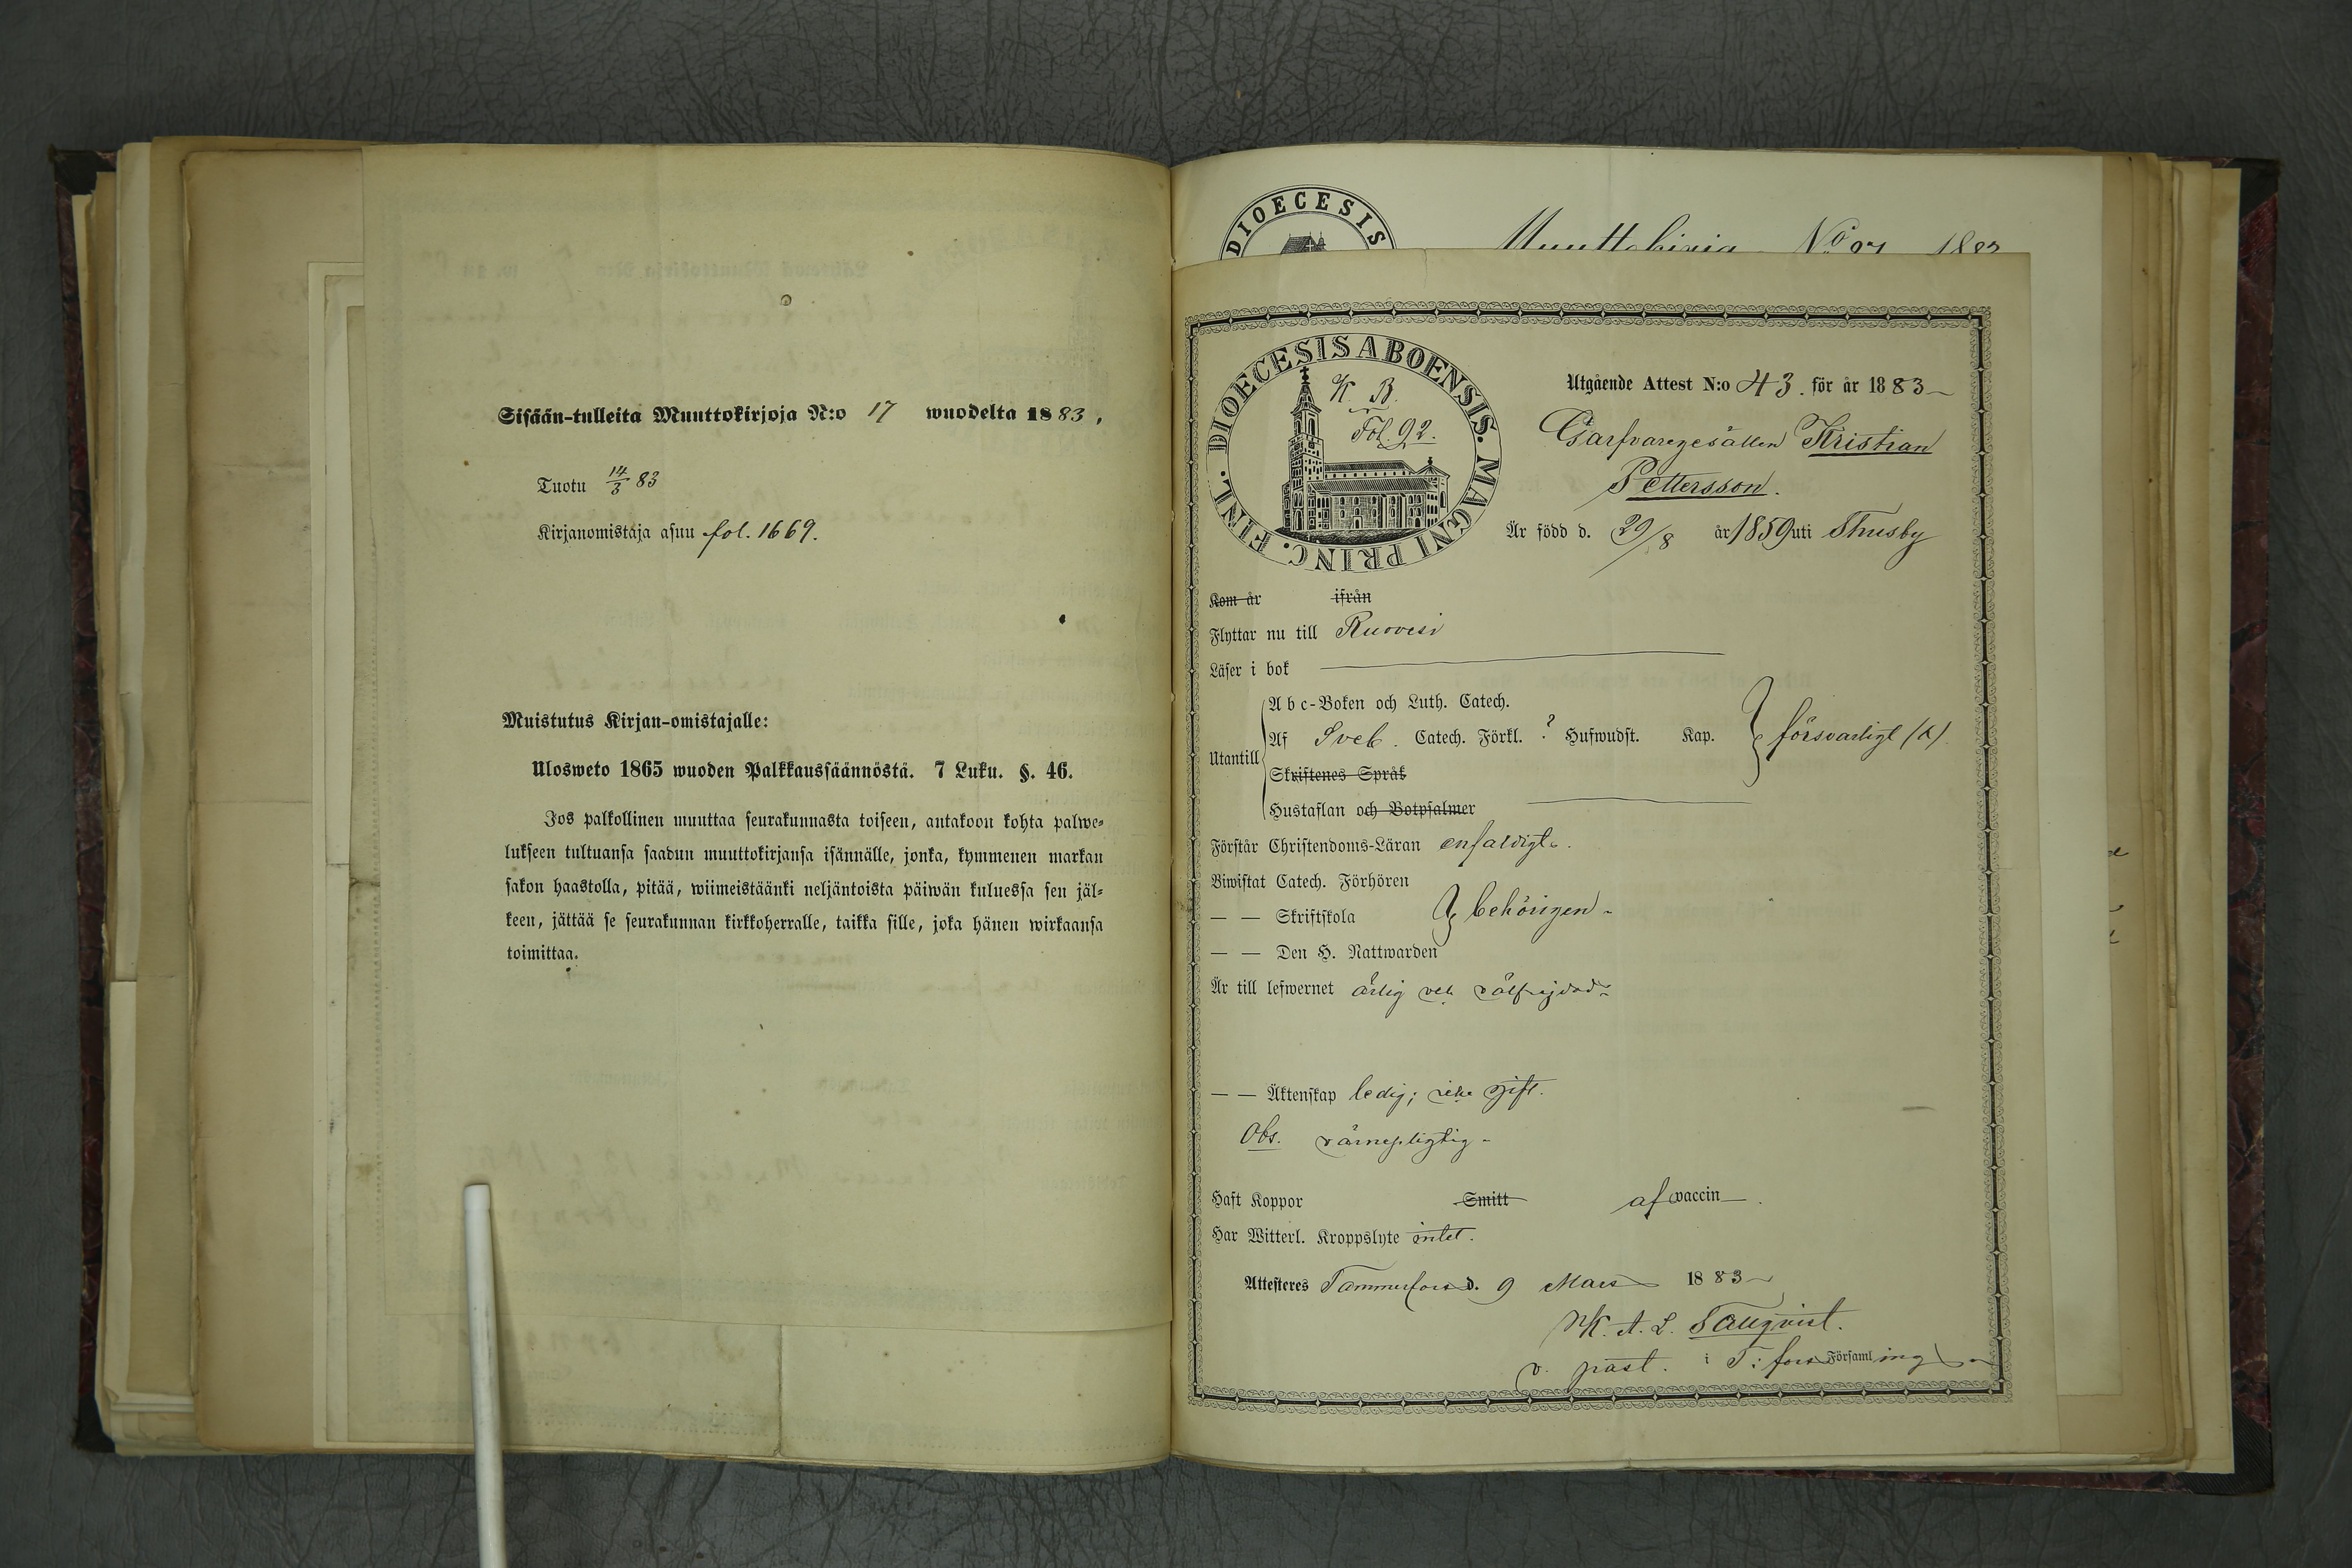 Sisään-tulleita Muuttokirjoja N:o 17 wuodelta 1883.
Tuotu 14/3 83
Kirjanomistaja asuu fol. 1669.
Muistutus Kirjan-omistajalle:
Ulosweto 1865 wuoden Palkkaussäännöstä. 7 Luku. §. 46.
Jos palkollinen muuttaa seurakunnasta toiseen, antakoon kohta palwe-
lukseen tultuansa saadun muuttokirjansa isännälle, jonka, kymmenen markan
sakon haastolla, pitää, wiimeistäänki neljäntoista päiwän kuluessa sen jäl-
keen, jättää se seurakunnan kirkkoherralle, taikka sille, joka hänen wirkaansa
toimittaa.
DIOECESIS
Muuttokirja No 1883
DIOECESIS ABOENSIS. MAGNI PRINC. FINL.
K. B.
Fol. 92.
Utgående Attest N:o 43. för år 1883
Garfvaregesällen Kristian
Pettersson.
Är född d. 29/8 år 1859 uti Thusby
Kom år ifrån
Flyttar nu till Ruovesi
Läser i bok
Utantill
Abc-Boken och Luth. Catech.
Af Sveb. Catech. Förkl. ? Hufwudst. Kap. försvarligt (a)
Skriftenes Språk
Hustaflan och Botpsalmer
Förstår Christendoms-Läran enfaldigt.
Biwistat Catech. Förhören
— — Skriftskola behörigen
— — Den H. Nattwarden
Är till lefwernet ärlig och välfrejdad
— — Äktenskap ledig; icke gift.
Obs. värnepligtig
Haft Koppor Smitt af vaccin
Har Witterl. Kroppslyte intet.
Attesteres Tammerfors d. 9 Mars 1883
K. A. L. Sallqvist.
v. past. i T:fors Församling